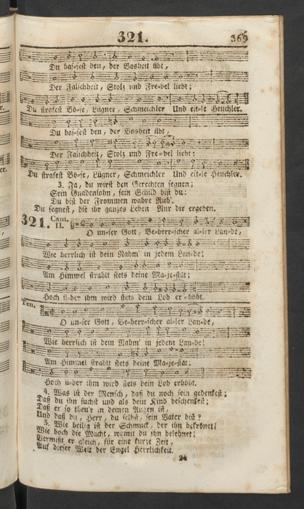 321.
369
Du has-sest den, der Bosheit übt,
Der Falschheit, Stolz und Fre-vel liebt;
Du strafest Bö-se, Lügner, Schmeichler Und eit-le Heuchler.
Du has-sest den, der Bosheit übt,
Der Falschheit, Stolz und Fre-vel liebt;
Du strafest Bö-se, Lügner, Schmeichler Und eit-le Heuchler.
3. Ja, du wirst den Gerechten segnen;
Sein Gnadenlohn, sein Schild bist du:
Du bist der Frommen wahre Ruh'.
Du segnest, die ihr ganzes Leben Nur dir ergeben.
321. Cant. II.
O un-ser Gott, Be-herr-scher al-ler Lan-de,
Wie herrlich ist dein Nahm' in jedem Lan-de!
Am Himmel strahlt stets deine Ma-je-stät;
Hoch ü-ber ihm wird stets dein Lob er-höht.
Ten.
O un-ser Gott, Be-herr-scher al-ler Lan-de,
Wie herrlich ist dein Nahm' in jedem Lan-de!
Am Himmel strahlt stets deine Ma-je-stät;
Hoch ü-ber ihm wird stets dein Lob erhöht.
4. Was ist der Mensch, daß du noch sein gedenkest;
Daß du ihn suchst und als dein Kind beschenkest;
Daß er so theu'r in deinen Augen ist,
Und daß du, Herr, du selbst, sein Vater bist?
5. Wie heilig ist der Schmuck, der ihn bekrönet!
Wie hoch die Macht, womit du ihn belehnet!
Vermißt er gleich, für eine kurze Zeit,
Auf dieser Welt der Engel Herrlichkeit.
24